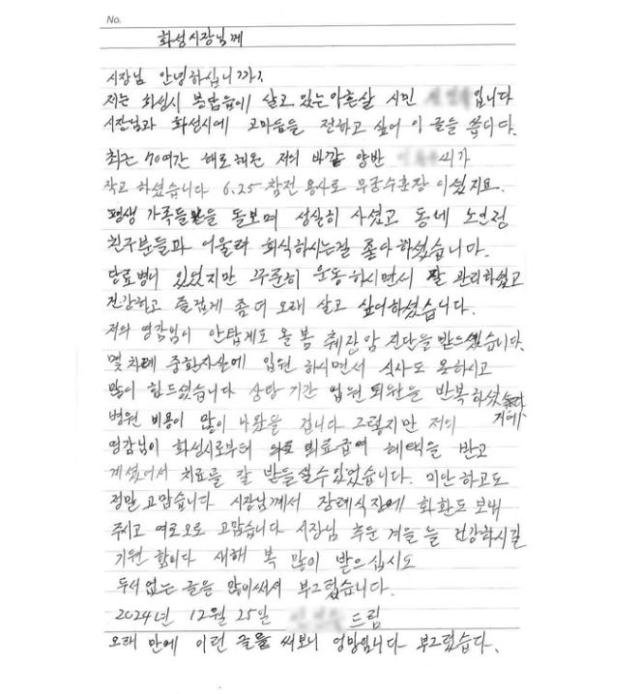 No.
화성시장님께
시장님 안녕하십니까.
저는 화성시 봉담읍에 살고 있는 아흔살 시민 입니다
시장님과 화성시에 고마음을 전하고 싶어 이 글을 씁니다.
최근 70여간 해로해온 저의 바깥 양반 씨가
작고 하셨습니다 6.25 참전 용사로 무궁수훈장 이셨지요.
평생 가족들을 돌보며 성실히 사셨고 동네 노인정
친구분들과 어울려 회식하시는걸 좋아하셨습니다.
당료병이 있었지만 꾸준히 운동하시면서 잘 관리하셨고
건강하고 즐겁게 좀 더 오래 살고 싶어하셨습니다.
저의 영감님이 안탑게도 올 봄 췌장암 진단을 받으셨습니다.
몇차례 중환자실에 입원 하시면서 식사도 못하시고
많이 힘드셨습니다 상당 기간 입원 퇴원을 반복하셧슴니다
병원 비용이 많이 나왔을 겁니다 그렇지만 저의
영감님이 화성시로부터 의료급여 혜택을 받고
계셨어서 치료를 잘 받을실수있었습니다. 미안하고도
정말 고맙습니다 시장님께서 장례식장에 화환도 보내
주시고 여로모로 고맙습니다 시장님 추운 겨울 늘 건강하시길
기원 합니다 새해 복 많이 받으십시요
두서없는 글을 많이써서 부끄럽습니다.
2024년 12월 25일 드림
오래 만에 이런 글을 써보니 엉망입니다 부끄럽습다.